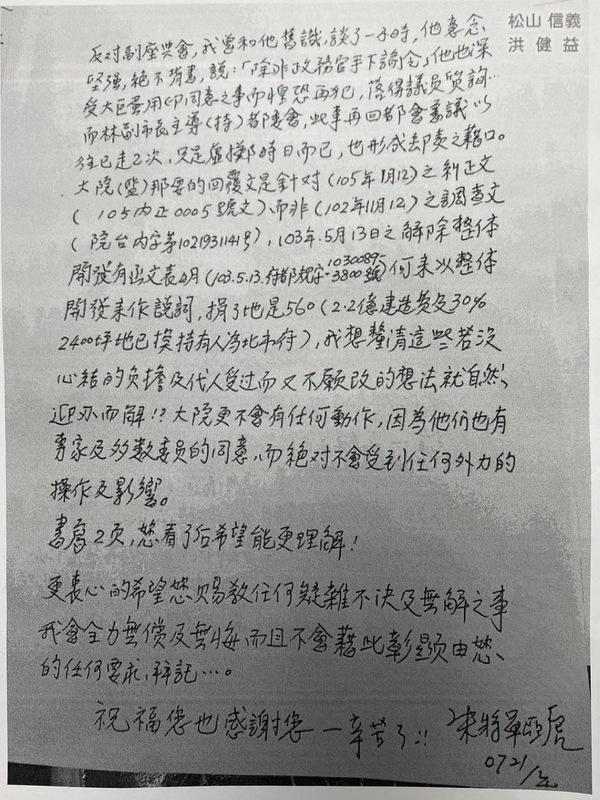 松山 信義
洪 健 益
反对副座與會,我曾和他舊識,談了一小時,他意念
堅強,絕不背書,說:「除非政務官手下諭令」他也深
受大巨蛋用印同意之事而惶恐再犯,落得議员質詢…
而林副市長主導(持)都委會,此事再回都會審議以
往已走2次,只是虛擲時日而已,也形成去卸責之藉口。
大院(監)那要的回覆文是針对(105年1月12)之糾正文
(105內正0005號文)、而非(102年11月12)之調查文
(院台內字第1021931141号),103年.5月13日之解除整体
開發有函文表明(103.5.13.府都規字-10300895
3800號)何來以整体
開發来作說詞,捐了地是560(2.2億建造費及30%
2400坪地已換持有人為北市府),我想釐清這些若沒
心結的负擔及代人受过而又不願改的想法就自然、
迎刃而解!?大院更不會有任何動作,因為他们也有
專家及多數委员的同意、而絕对不會受到任何外力的
操作及影響。
書寫2页,您看了后希望能更理解!
更衷心的希望您賜教任何疑難不決及無解之事
我會全力無償及無悔而且不會藉此彰顯由您、
的任何要求、辩記…。
祝福您也感謝您一辛苦了!!
0721/